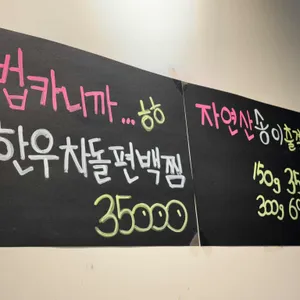 법카니까... ㅎㅎ
한우차돌편백찜
35000
자연산송이
150g 35
300g 6